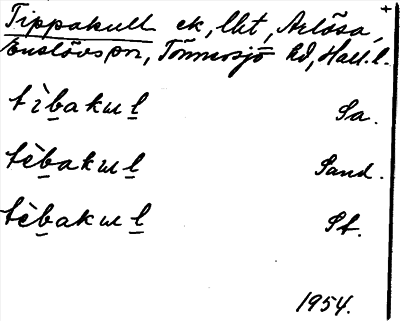 Tippakull ek, lht, Axlösa,
Enslövs sn, Tönnersjö hd, Hall. l.
tìb̲akul̲ Sa.
tèb̲akul̲ Sand.
tèb̲akul̲ St.
1954.